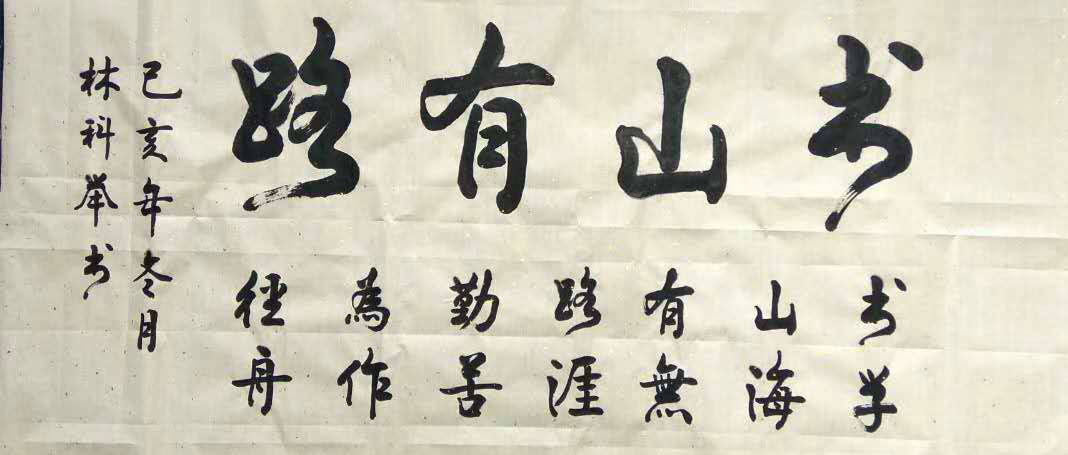 书山有路
书山有路勤為徑
学海無涯苦作舟
己亥年冬月
林科举书